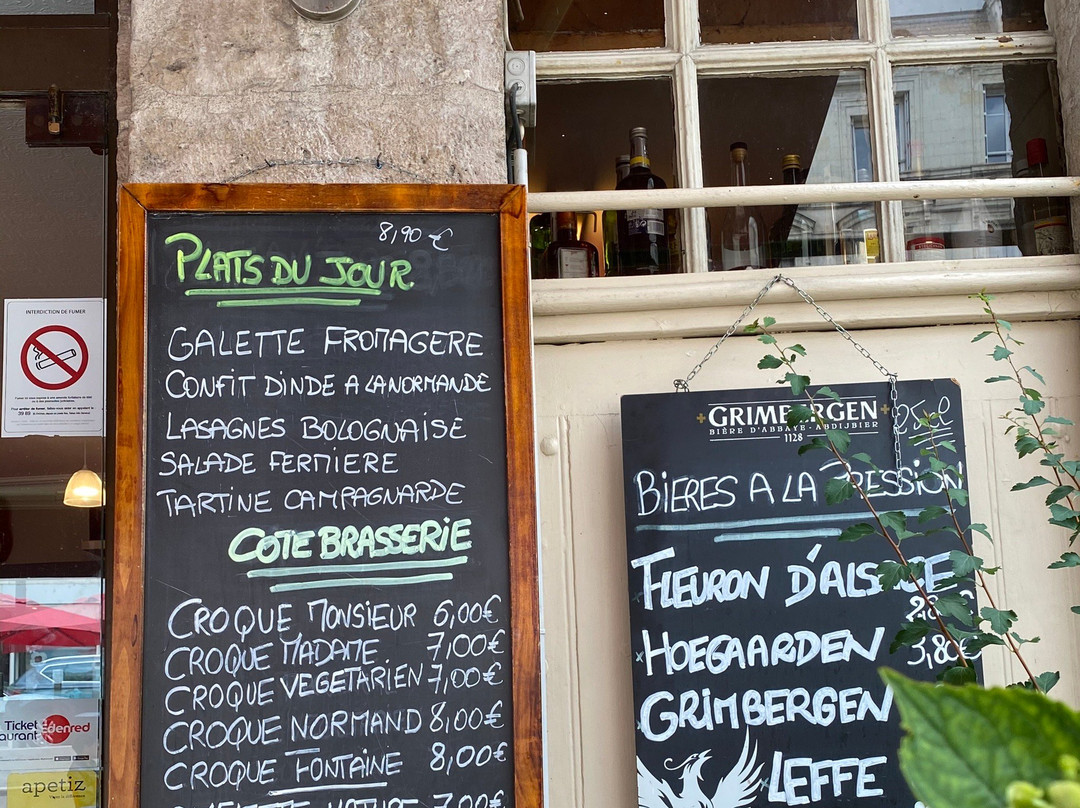 8,90 €
PLATS DU JOUR
GALETTE FROMAGERE
CONFIT DINDE A LA NORMANDE
LASAGNES BOLOGNAISE
SALADE FERMIERE
TARTINE CAMPAGNARDE
COTE BRASSERIE
CROQUE MONSIEUR 6,00€
CROQUE MADAME 7,00€
CROQUE VEGETARIEN 7,00€
CROQUE NORMAND 8,00€
CROQUE FONTAINE 8,00€
NATURE 7,00€
INTERDICTION DE FUMER
Ticket
Edenred
apetiz
GRIMBERGEN
BIÈRE D'ABBAYE-ABDIJBIER
1128
25cl
BIERES A LA PRESSION
FLEURON D'ALSACE
HOEGAARDEN 3,80€
GRIMBERGEN
LEFFE